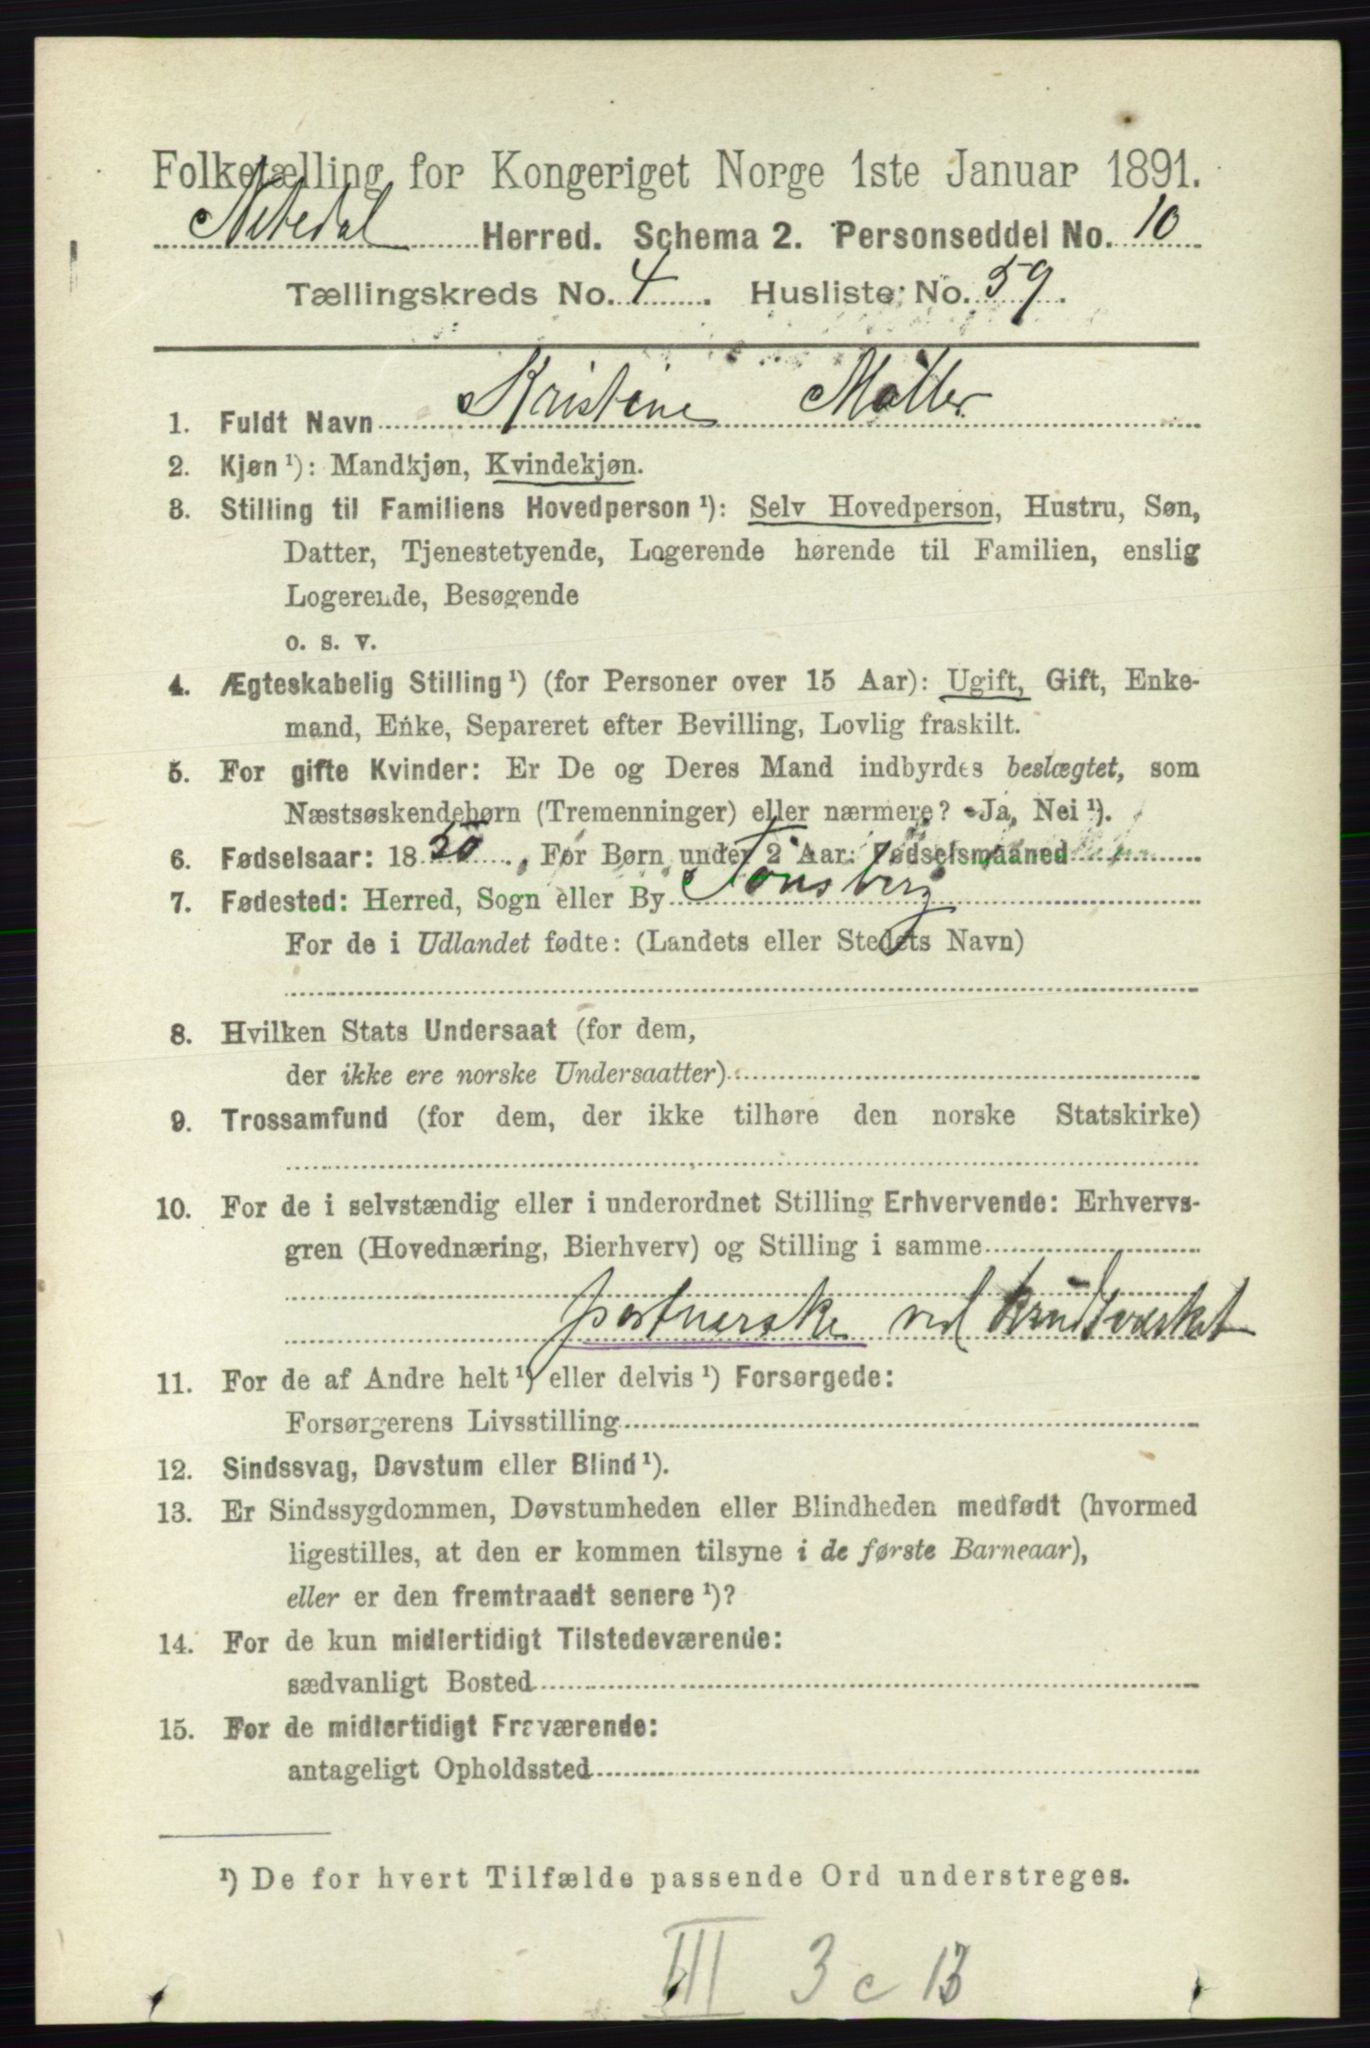 Folketælling for Kongeriget Norge 1ste Januar 1891.
Nitedal Herred. Schema 2. Personseddel No. 10
Tællingskreds No. 4. Husliste No. 59.
1. Fuldt Navn Kristine Møller
2. Kjøn ¹): Mandkjøn, Kvindekjøn.
3. Stilling til Familiens Hovedperson ¹): Selv Hovedperson, Hustru, Søn,
Datter, Tjenestetyende, Logerende hørende til Familien, enslig
Logerende, Besøgende
o. s. v.
4. Ægteskabelig Stilling ¹) (for Personer over 15 Aar): Ugift, Gift, Enke-
mand, Enke, Separeret efter Bevilling, Lovlig fraskilt.
5. For gifte Kvinder: Er De og Deres Mand indbyrdes beslægtet, som
Næstsøskendebørn (Tremenninger) eller nærmere? Ja, Nei ¹).
6. Fødselsaar: 1850. For Børn under 2 Aar: Fødselsmaaned
7. Fødested: Herred, Sogn eller By Tønsberg
For de i Udlandet fødte: (Landets eller Stedets Navn)
8. Hvilken Stats Undersaat (for dem,
der ikke ere norske Undersaatter)
9. Trossamfund (for dem, der ikke tilhøre den norske Statskirke)
10. For de i selvstændig eller i underordnet Stilling Erhvervende: Erhvervs-
gren (Hovednæring, Bierhverv) og Stilling i samme
ved Krudtværket
11. For de af Andre helt ¹) eller delvis ¹) Forsørgede:
Forsørgerens Livsstilling
12. Sindssvag, Døvstum eller Blind ¹).
13. Er Sindssygdommen, Døvstumheden eller Blindheden medfødt (hvormed
ligestilles, at den er kommen tilsyne i de første Barneaar),
eller er den fremtraadt senere ¹)?
14. For de kun midlertidigt Tilstedeværende:
sædvanligt Bosted
15. For de midlertidigt Fraværende:
antageligt Opholdssted
¹) De for hvert Tilfælde passende Ord understreges.
III 3 c 13